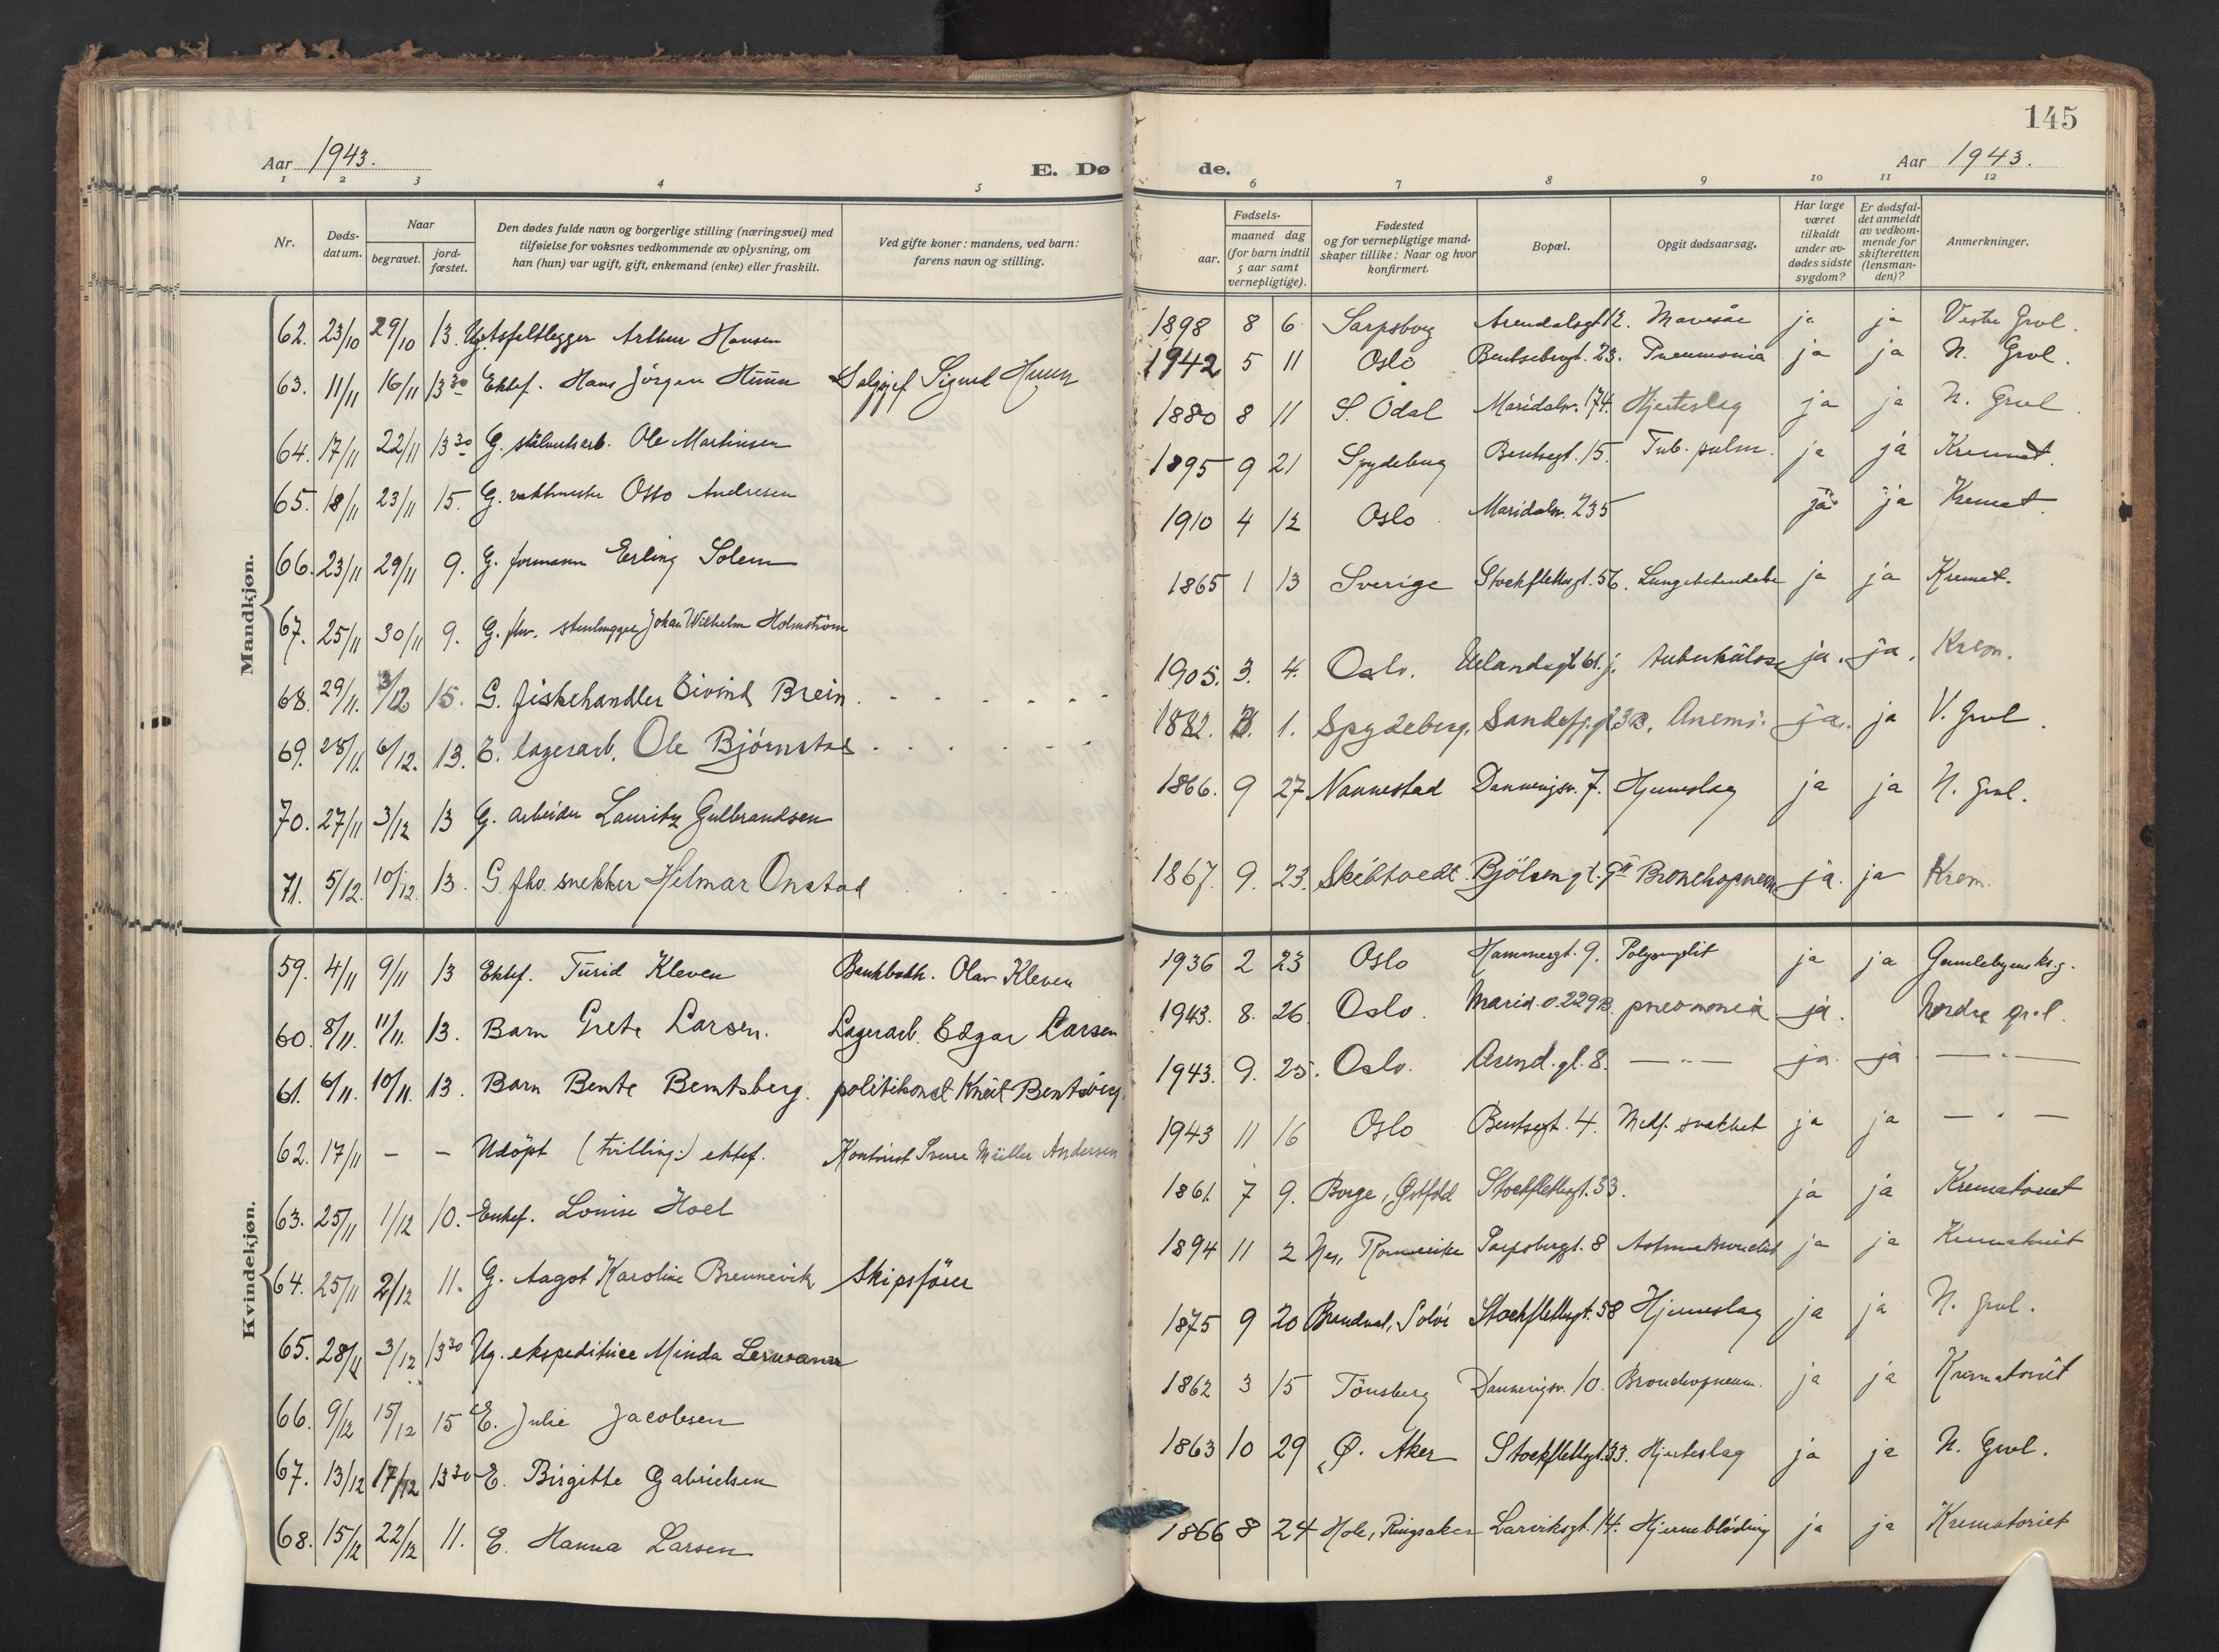 145
Aar 1943.
E. Døde.
Aar 1943.
1 2 3 4 5 6 7 8 9 10 11 12
Nr.
Døds-
datum.
Naar
begravet.
jord-
fæstet.
Den dødes fulde navn og borgerlige stilling (næringsvei) med
tilføielse for voksnes vedkommende av oplysning, om
han (hun) var ugift, gift, enkemand (enke) eller fraskilt.
Ved gifte koner: mandens, ved barn:
farens navn og stilling.
Fødsels-
aar.
maaned dag
(for barn indtil
5 aar samt
vernepligtige).
Fødested
og for vernepligtige mand-
skaper tillike: Naar og hvor
konfirmert.
Bopæl.
Opgit dødsaarsag.
Har læge
været
tilkaldt
under av-
dødes sidste
sygdom?
Er dødsfal-
det anmeldt
av vedkom-
mende for
skifteretten
(lensman-
den)?
Anmerkninger.
Mandkjøn.
62. 23/10 29/10 13. Ug. Asfaltlegger Arthur Hansen 1898 8 6 Sarpsborg Arendalsgt. 12. Mavesår ja ja Vestre Grvl.
63. 11/11 16/11 13 30 Ektef. Hans Jörgen Huun Salgsjef Sigurd Huun 1942 5 11 Oslo Bentsebrugt. 23. Pneumonia ja ja N. Grvl.
64. 17/11 22/11 13 30 G. stålverksarb. Ole Martinsen 1880 8 11 S. Odal Maridalsv. 174. Hjerteslag ja ja N. Grvl.
65. 18/11 23/11 15. G. vaktmester Otto Andresen 1895 9 21 Spydeberg Bentsegt. 15. Tub. pulm. ja ja Kremat.
66. 23/11 29/11 9. G. formann Erling Solem 1910 4 12 Oslo Maridalsv. 235 ja ja Kremat.
67. 25/11 30/11 9. G. fhv. stenhugger Johan Wilhelm Holmström 1865 1 13 Sverige Stockflethsgt. 56. Lungebetendelse ja ja Kremat.
68. 29/11. 3/12 15. G. fiskehandler Eivind Brein. 1905. 3. 4. Oslo. Uelandsgt. 61. j. tuberkulose ja. ja. Krem.
69. 28/11. 6/12. 13. E. lagerarb. Ole Bjørnstad 1882. 1. Spydeberg. Sandefj.gt 23B. Anemi. ja. ja V. Grvl.
70. 27/11 3/12 13 G. arbeider Lauritz Gulbrandsen 1866. 9 27 Nannestad Dannevigsv. 7. Hjerneslag ja ja N. Grvl.
71. 5/12. 10/12. 13. G. fhv. snekker Hilmar Onstad 1867. 9. 23. Skiptvedt. Bjölsengt. 9 II Bronchopneum ja. ja Krem.
Kvindekjøn.
59. 4/11 9/11 13 Ektef. Turid Kleven Bankbokh. Olav Kleven 1936 2 23 Oslo Hammergt. 9. ja ja Gamlebyens k.g.
60. 8/11. 11/11. 13. Barn Grete Larsen. Lagerarb. Edgar Larsen 1943. 8. 26 Oslo. Marid.v. 229B. pneomonia ja. Nordre grvl.
61. 6/11. 10/11. 13. Barn Bente Berntsberg. politikonst Knut Bentsberg. 1943. 9. 25. Oslo. Arend.gt. 8. — " — ja. ja — " —
62. 17/11 – – Udöpt (tvilling:) ektef. Kontorist Sverre Müller Andersen 1943 11 16 Oslo Bentsegt. 4. Medf. svakhet ja ja — " —
63. 25/11 1/12 10. Enkef. Louise Hoel 1861. 7 9. Borge, Østfold Stockflethsgt. 33. ja ja Krematoriet
64. 25/11 2/12 11. G. Aagot Karoline Brennevik Skipsfører 1894 11 2 Nes, Romerike Sarpsborggt. 8 Astma Bronchit ja ja Krematoriet
65. 28/11 3/12 13 30 Ug. ekspeditrice Minda 1875 9 20 Brandval, Solör Stockflethsgt. 58 Hjerneslag ja ja N. grvl.
66. 9/12 15/12 15 E. Julie Jacobsen 1862 3 15 Tönsberg Dannevigsv. 10. Bronchopneum. ja ja Krematoriet
67. 13/12 17/12 13 30 E. Birgitte Gabrielsen 1863 10 29 Ø. Aker Stockflethsgt. 33. Hjerteslag ja ja N. Grvl.
68. 15/12 22/12 11. E. Hanna Larsen 1866 8 24 Hole, Ringsaker Larviksgt. 14. Hjerneblödning ja ja Krematoriet